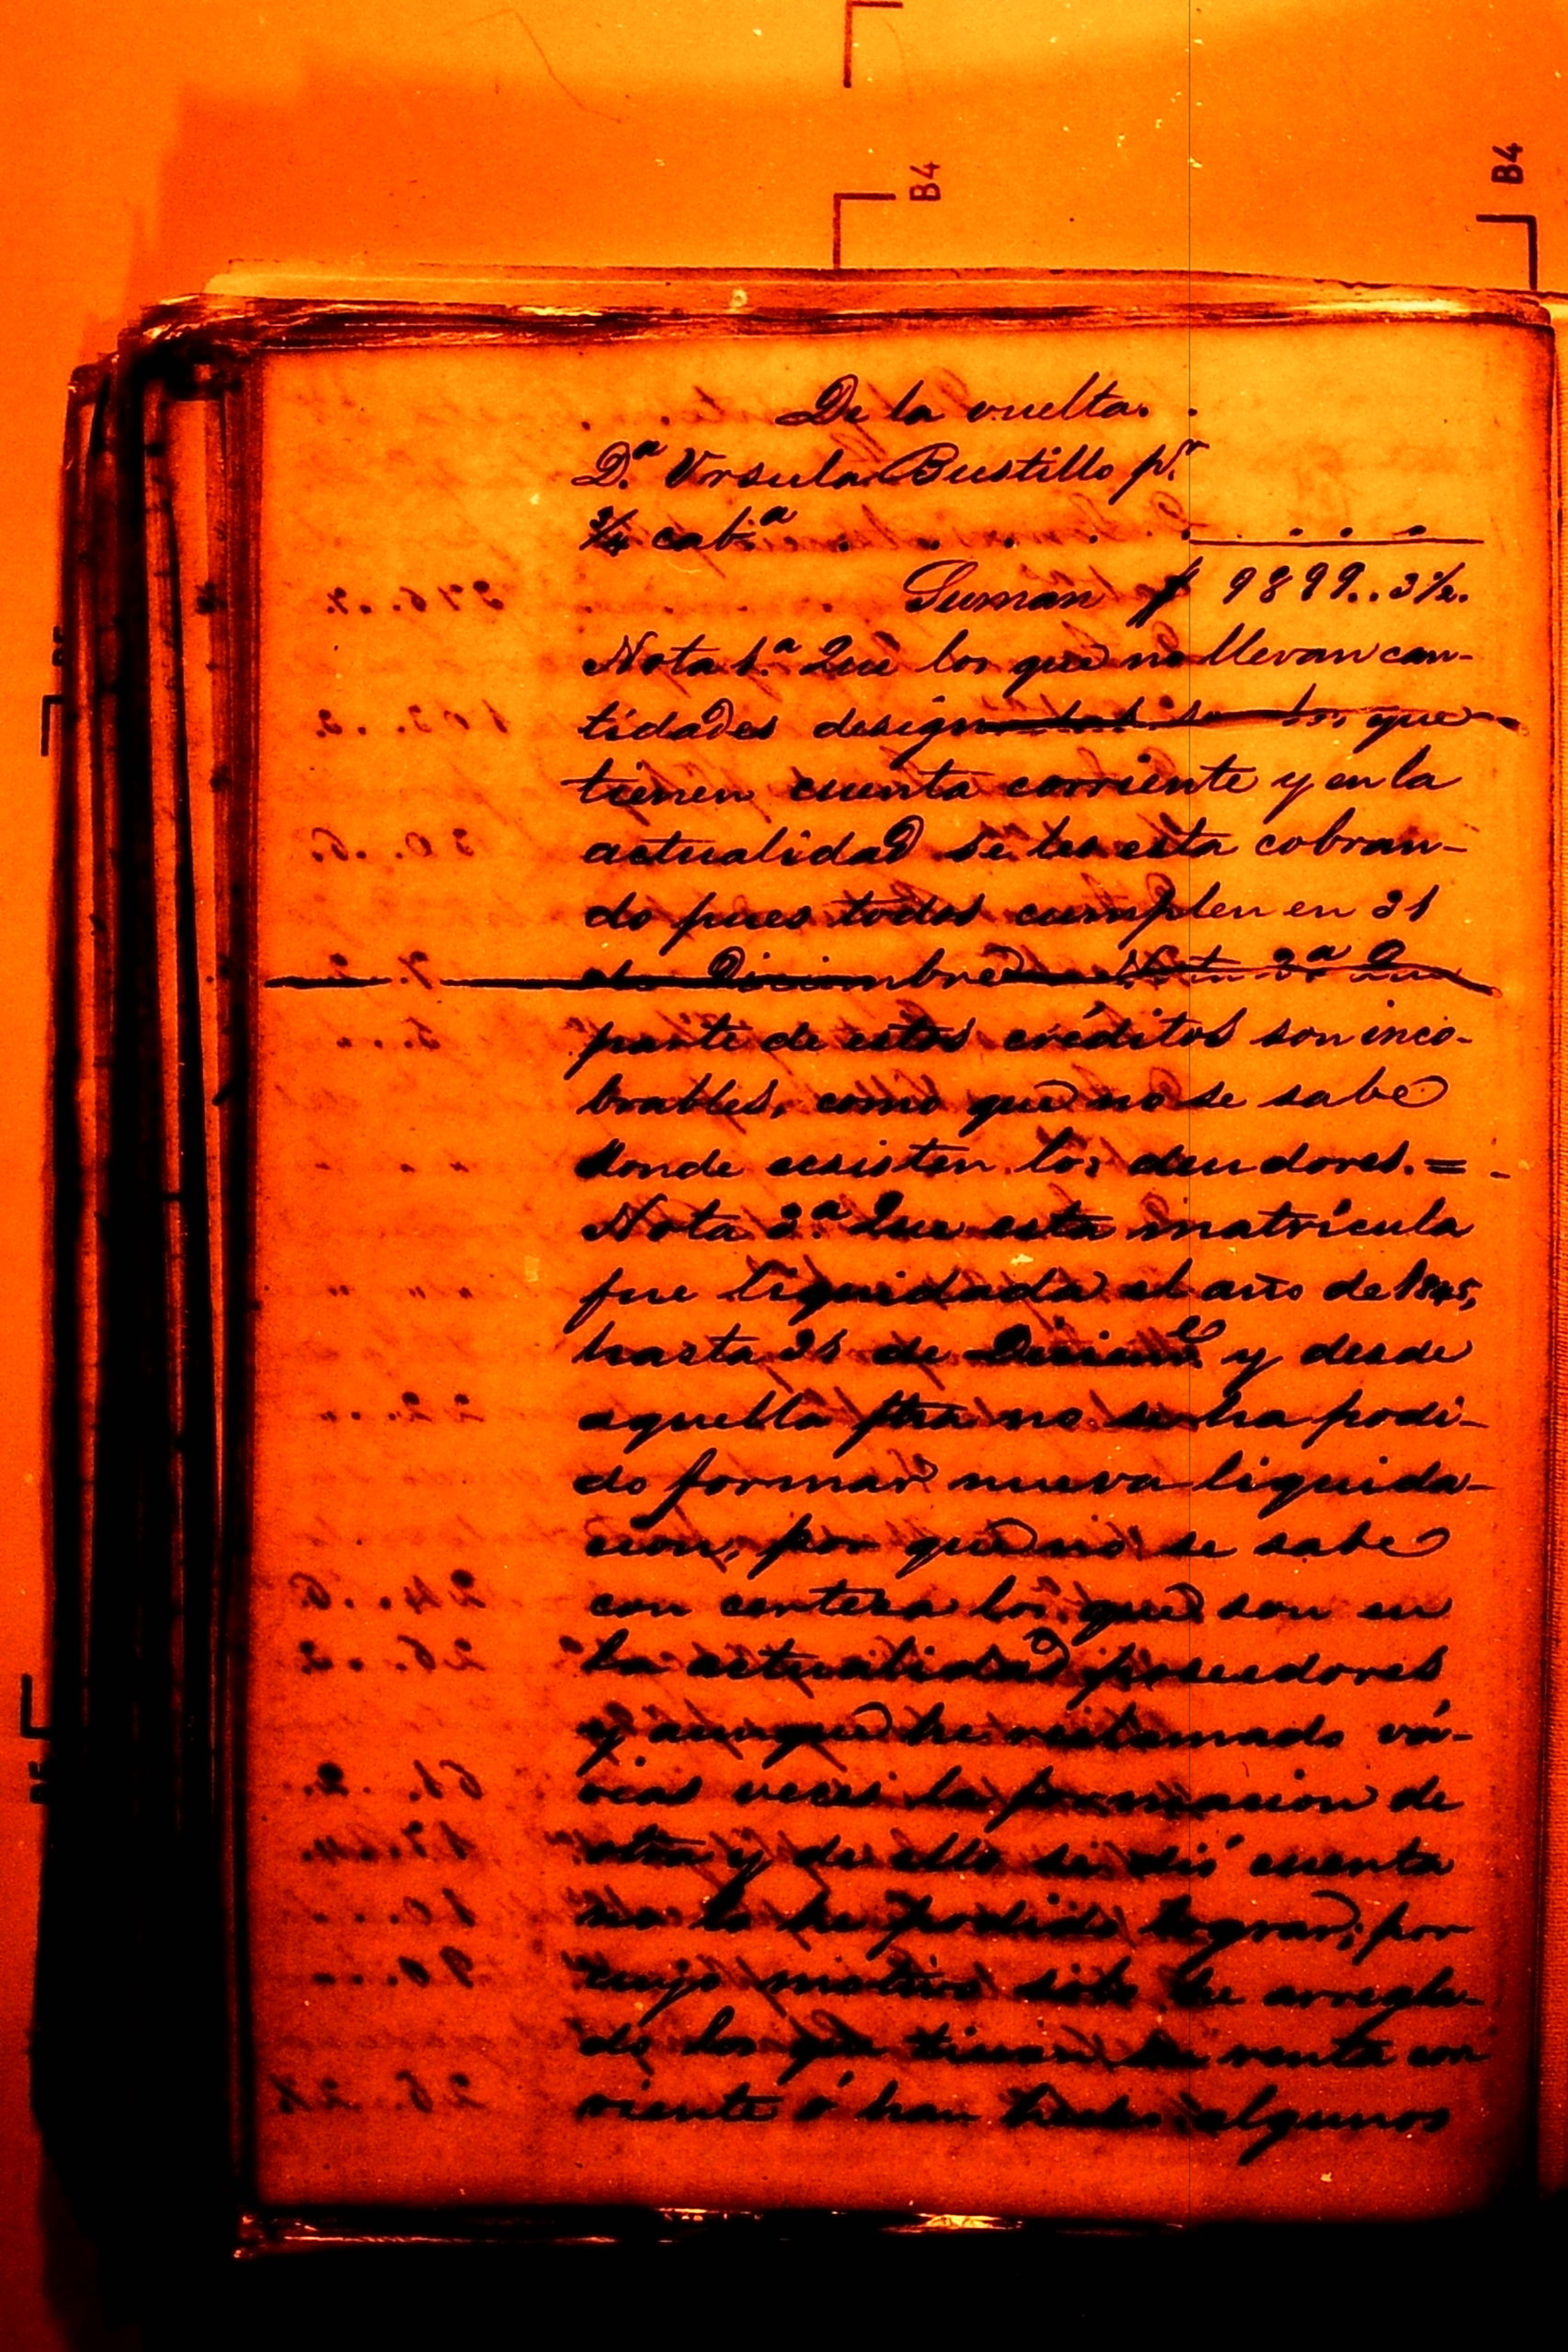 B4
B4
De la vuelta. .
D.ª Ursula Bustillo p.r
3/4 cab.ª . . . . . . .
Suman $ 9899..3 1/2.
Nota 1.ª Que los que no llevan can-
tidades design los que
tienen cuenta corriente y en la
actualidad se les esta cobran-
do pues todos cumplen en 31
de Diciembre Nota 2.ª Que
parte de estos créditos son inco-
brables, como que no se sabe
donde ecsisten los deudores. =
Nota 3.ª Que esta matrícula
fue liquidada el año de 1845,
hasta 31 de Diciem.e y desde
aquella fha no se ha podi-
do formar nueva liquida-
cion, por que no se sabe
con certeza los que son en
la actualidad poseedores
y aunque he reclamado vá-
rias veces la formacion de
otra y de ello se dió cuenta
no lo he podido lograr; por
cuyo motivo solo he arregla-
do los que tienen su venta cor
riente ó han hecho algunos